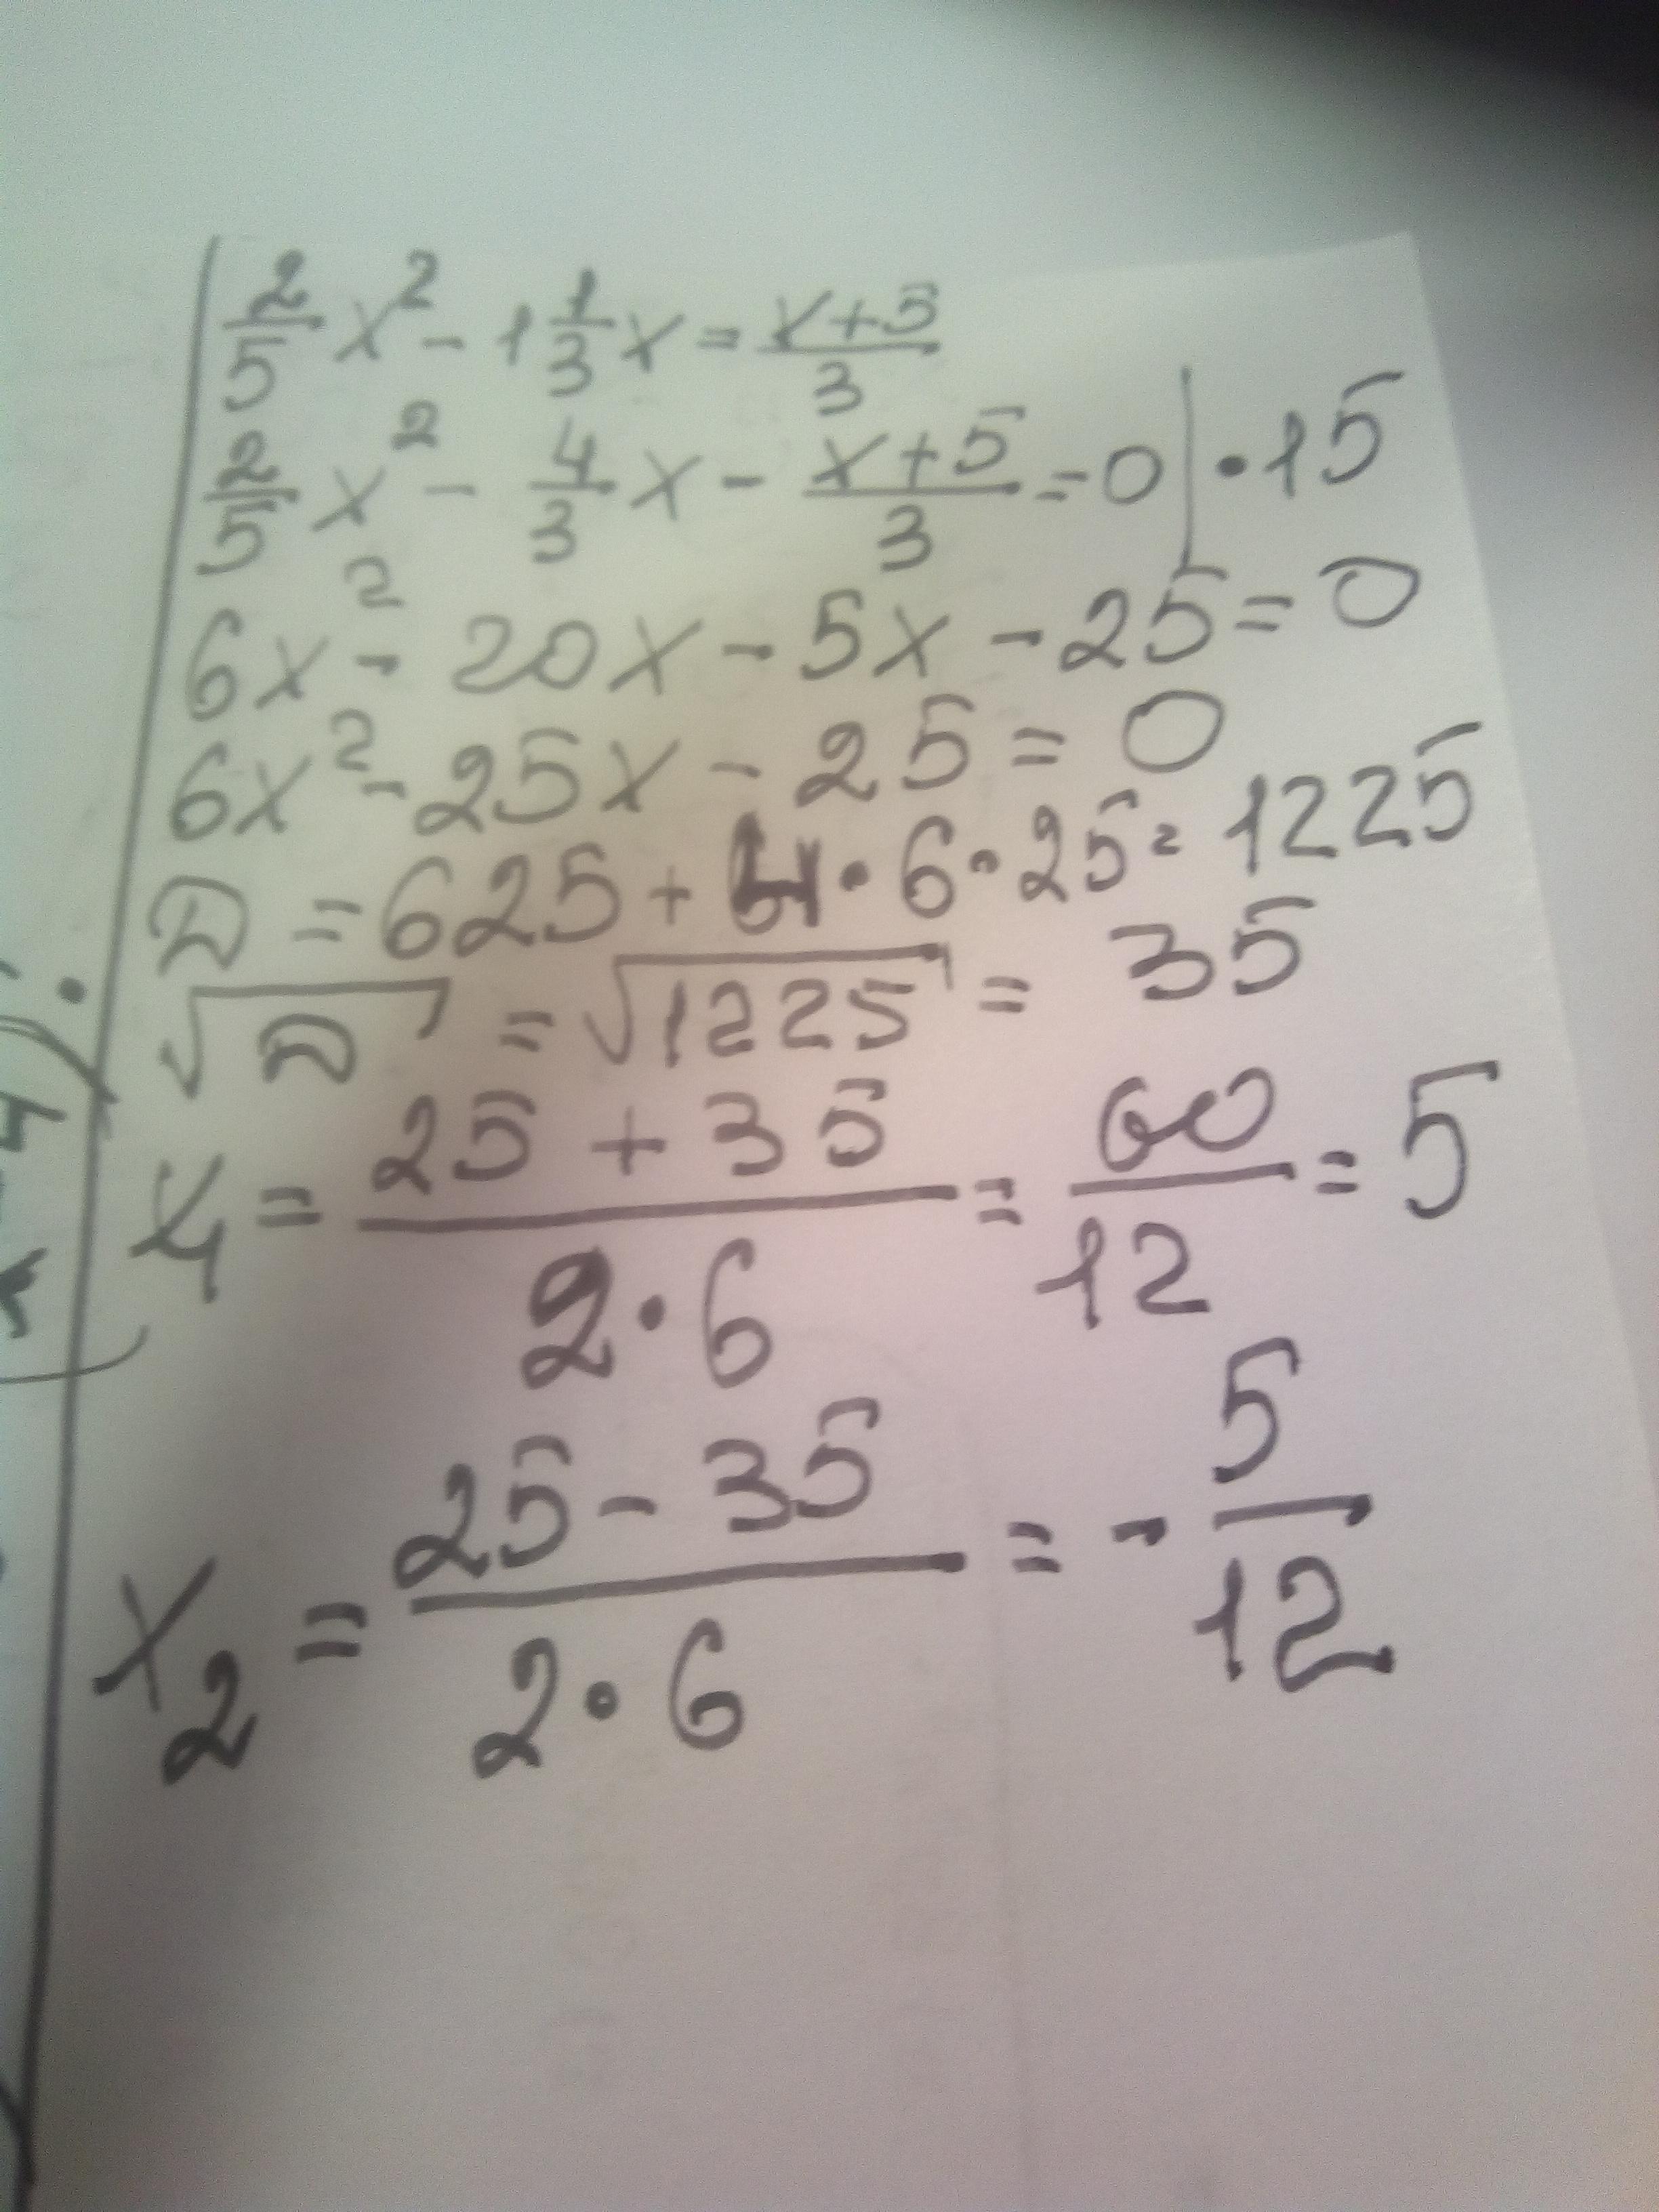 2/5 x² - 1 1/3 x = (x+5)/3
2/5 x² - 4/3 x - (x+5)/3 = 0 | · 15
6x² - 20x - 5x - 25 = 0
6x² - 25x - 25 = 0
D = 625 + 4 · 6 · 25 = 1225
√D = √1225 = 35
x₁ = (25 + 35)/(2 · 6) = 60/12 = 5
x₂ = (25 - 35)/(2 · 6) = - 5/12